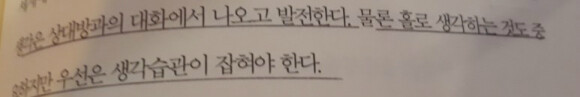 상대방과의 대화에서 나오고 발전한다. 물론 홀로 생각하는 것도 중
요하지만 우선은 생각습관이 잡혀야 한다.